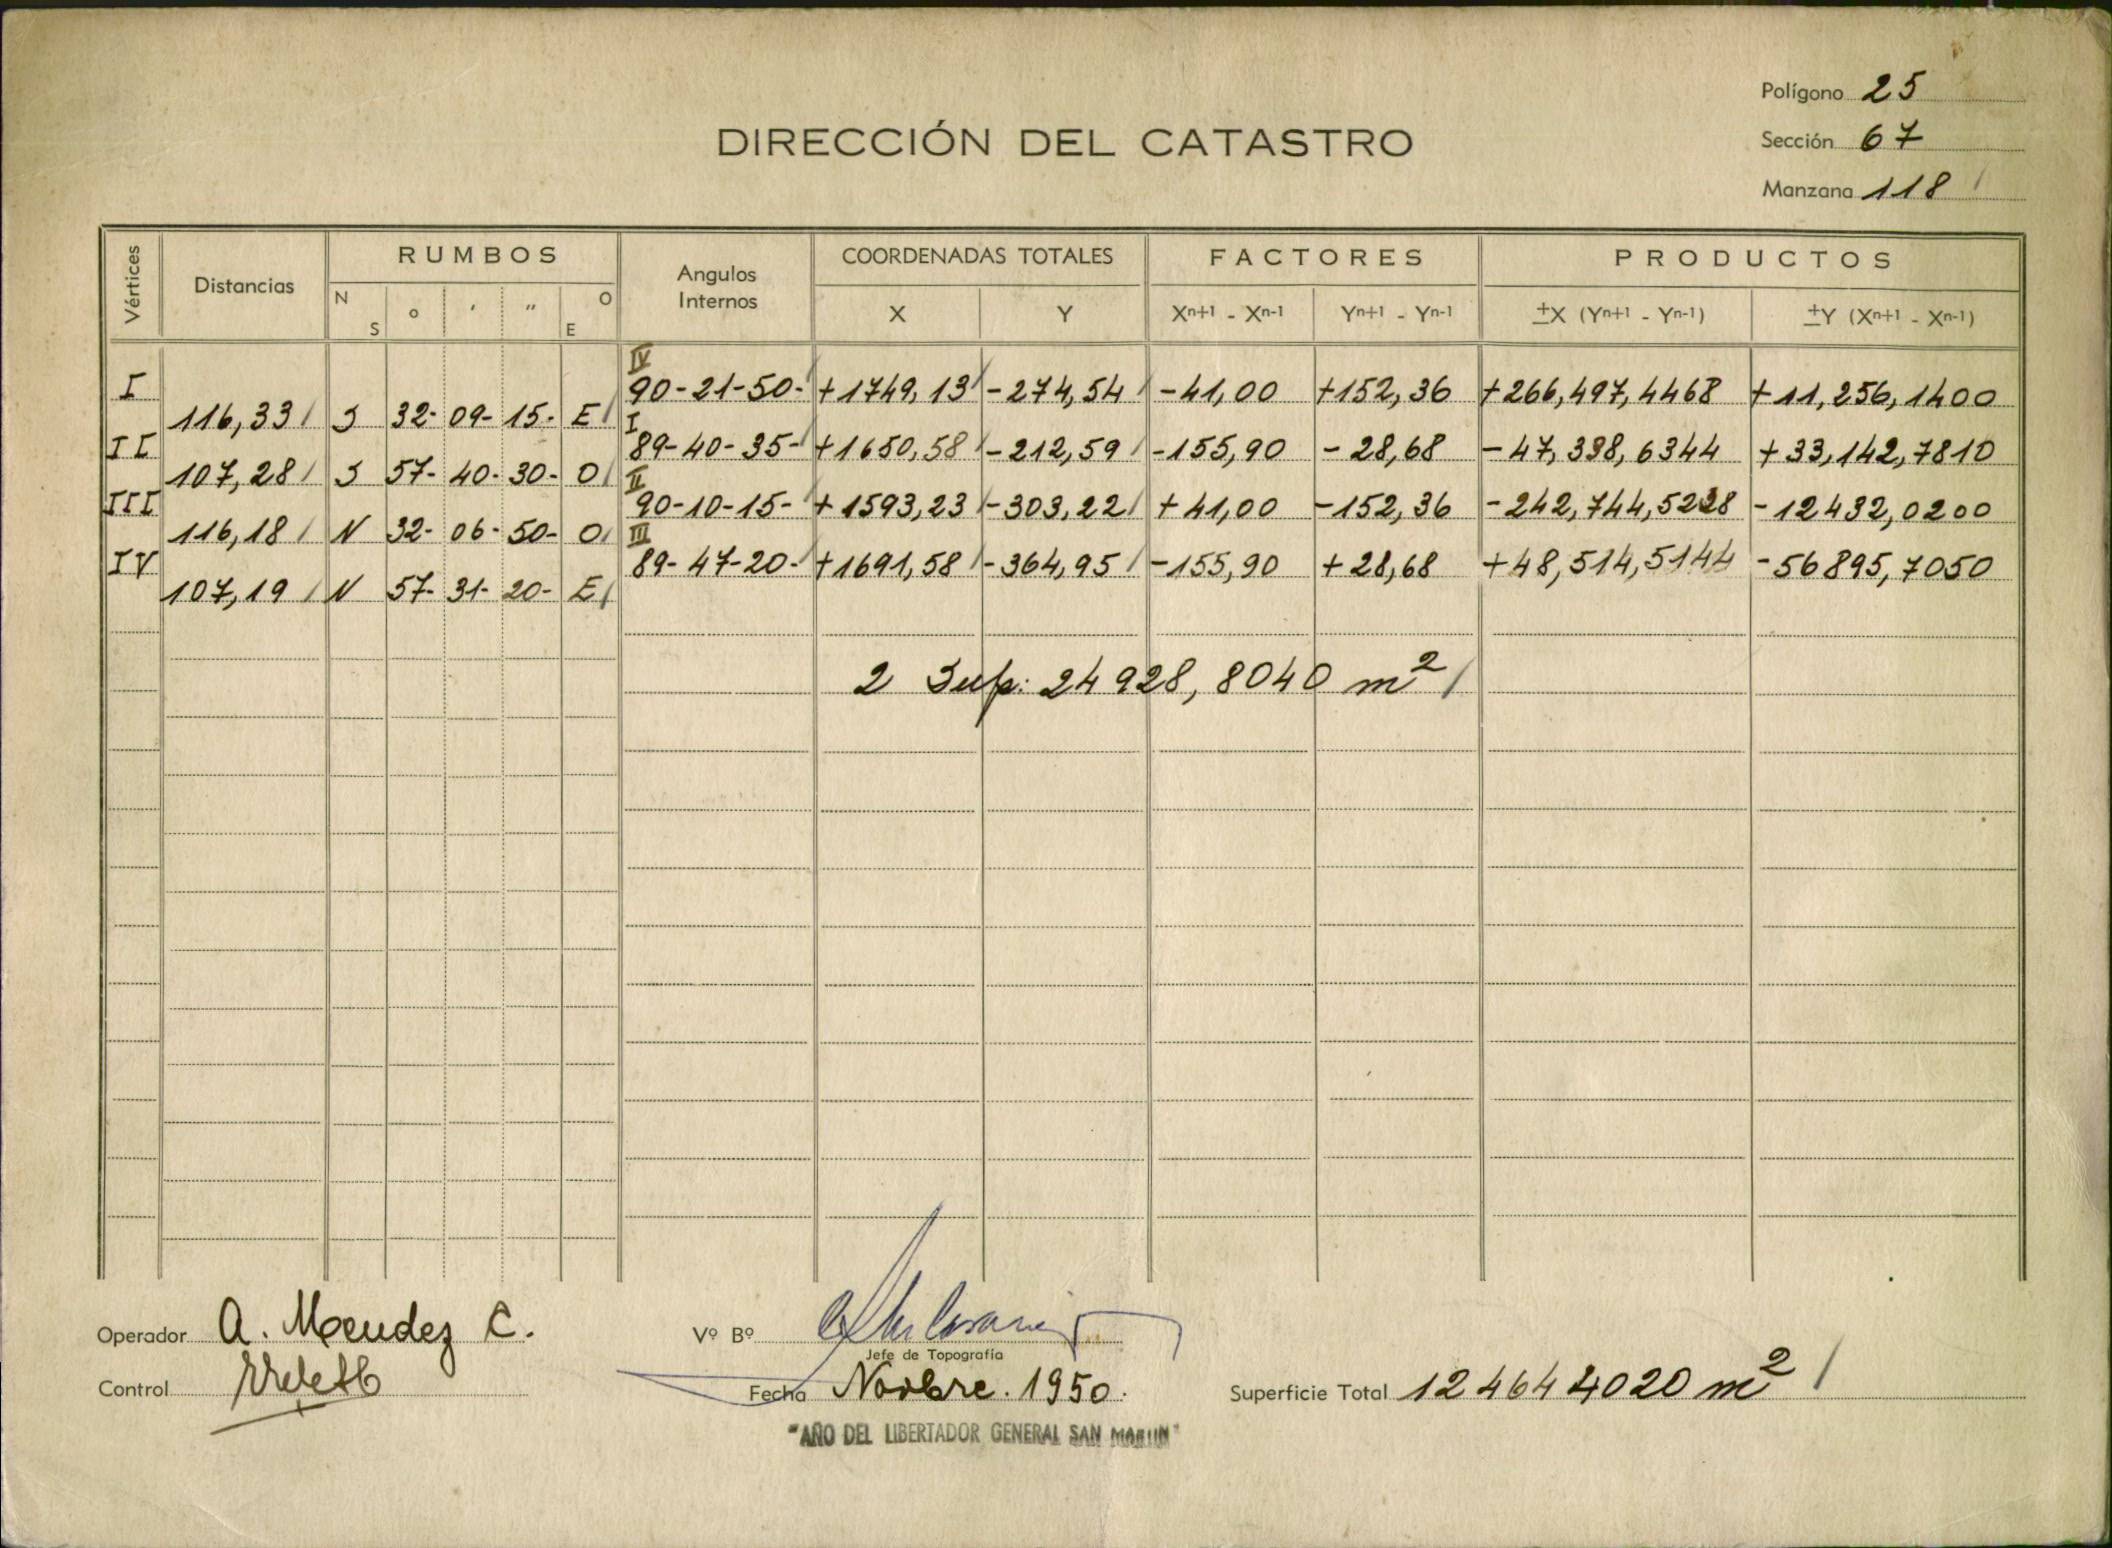 Polígono 25
DIRECCIÓN DEL CATASTRO
Sección 67
Manzana 118
Vértices Distancias RUMBOS Angulos Internos COORDENADAS TOTALES FACTORES PRODUCTOS
N S o ' " O E X Y Xn+1 - Xn-1 Yn+1 - Yn-1 ±X (Yn+1 - Yn-1) ±Y (Xn+1 - Xn-1)
IV
I 90-21-50- +1749,13 -274,54 -41,00 +152,36 +266,497,4468 +11,256,1400
116,33 S 32- 09- 15- E I
II 89-40-35- +1650,58 -212,59 -155,90 -28,68 -47,338,6344 +33,142,7810
107,28 S 57- 40- 30- O II
III 90-10-15- +1593,23 -303,22 +41,00 -152,36 -242,744,5228 -12432,0200
116,18 N 32- 06- 50- O III
IV 89-47-20- +1691,58 -364,95 -155,90 +28,68 +48,514,5144 -56895,7050
107,19 N 57- 31- 20- E
2 Sup: 24928,8040 m²
Operador A. Mendez C.
Vº Bº
Jefe de Topografía
Control
Fecha Novbre. 1950.
Superficie Total 124644020 m²
"AÑO DEL LIBERTADOR GENERAL SAN MARTIN"